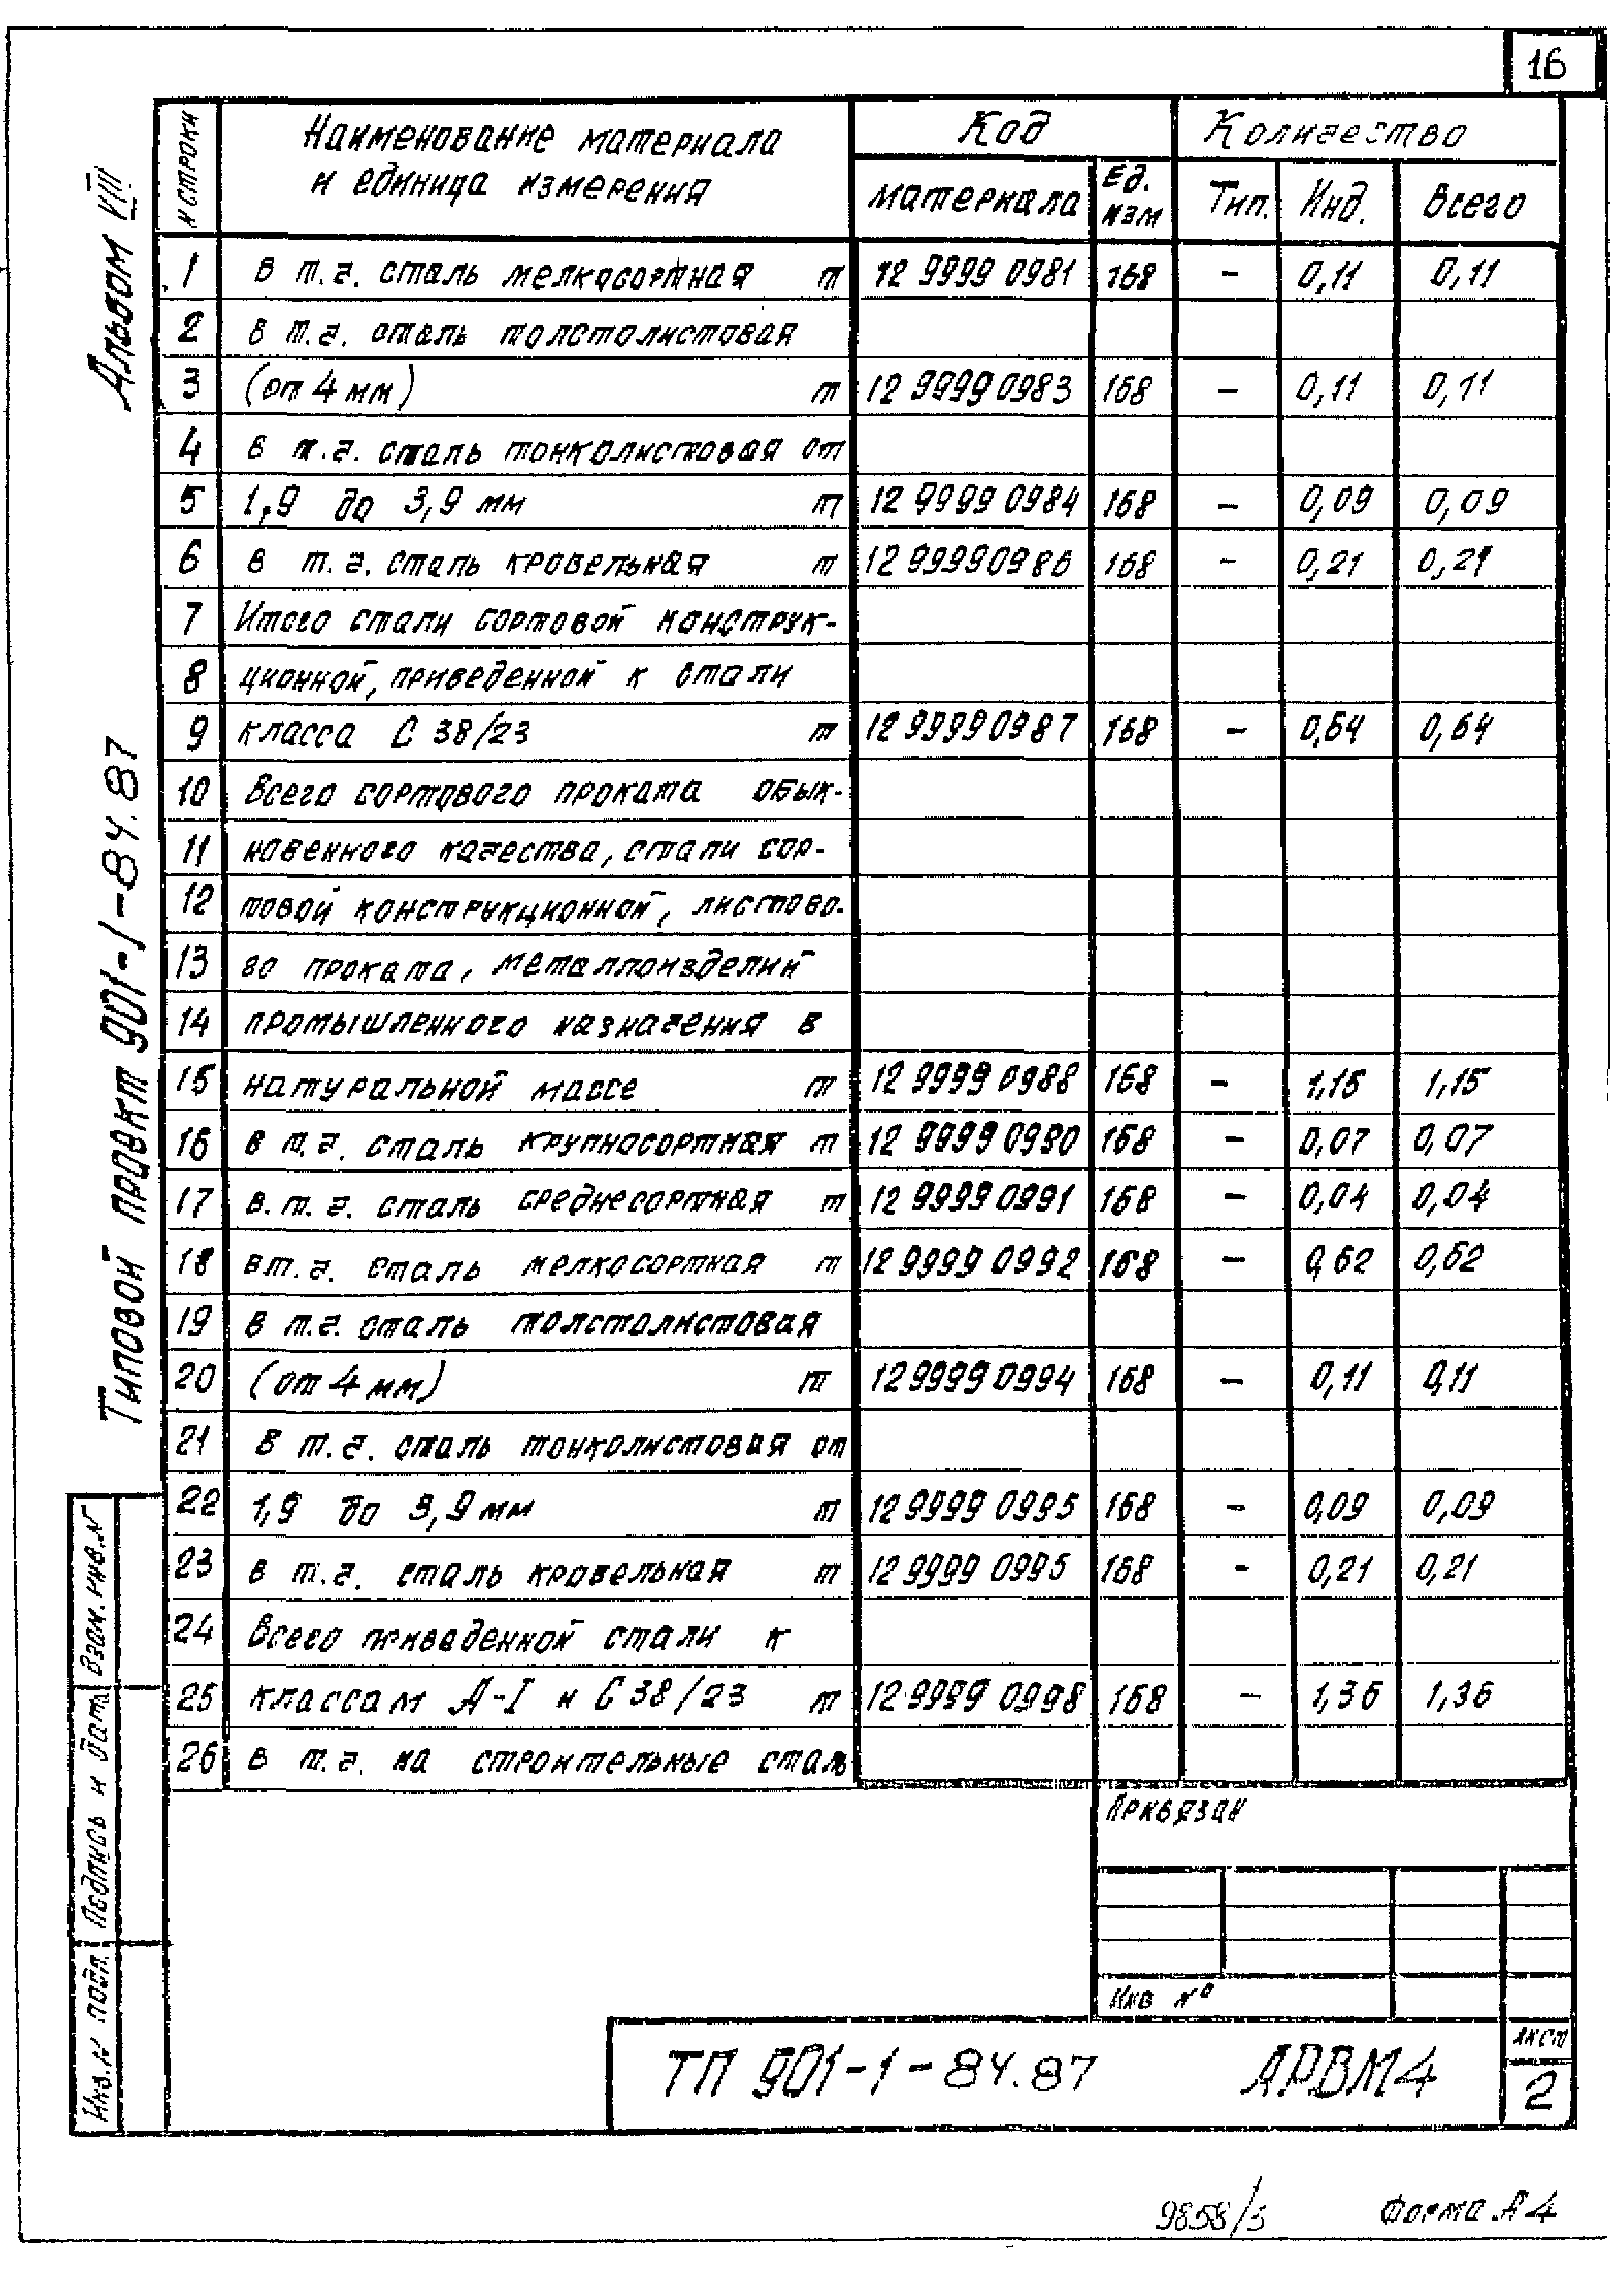 16
Альбом VIII
Типовой проект 901-1-84.87
N строки | Наименование материала и единица измерения | Код | Количество
материала | Ед. изм | Тип. | Инд. | Всего
1 | в т.ч. сталь мелкосортная т | 12 9999 0981 | 168 | - | 0,11 | 0,11
2 | в т.ч. сталь толстолистовая
3 | (от 4 мм) т | 12 9999 0983 | 168 | - | 0,11 | 0,11
4 | в т.ч. сталь тонколистовая от
5 | 1,9 до 3,9 мм т | 12 9999 0984 | 168 | - | 0,09 | 0,09
6 | в т.ч. сталь кровельная т | 12 9999 0986 | 168 | - | 0,21 | 0,21
7 | Итого стали сортовой конструк-
8 | ционной, приведенной к стали
9 | класса С 38/23 т | 12 9999 0987 | 168 | - | 0,64 | 0,64
10 | Всего сортового проката обык-
11 | новенного качества, стали сор-
12 | товой конструкционной, листово-
13 | го проката, металлоизделий
14 | промышленного назначения в
15 | натуральной массе т | 12 9999 0988 | 168 | - | 1,15 | 1,15
16 | в т.ч. сталь крупносортная т | 12 9999 0990 | 168 | - | 0,07 | 0,07
17 | в.т.ч. сталь среднесортная т | 12 9999 0991 | 168 | - | 0,04 | 0,04
18 | в т.ч. сталь мелкосортная т | 12 9999 0992 | 168 | - | 0,62 | 0,62
19 | в т.ч. сталь толстолистовая
20 | (от 4 мм) т | 12 9999 0994 | 168 | - | 0,11 | 0,11
21 | в т.ч. сталь тонколистовая от
22 | 1,9 до 3,9 мм т | 12 9999 0995 | 168 | - | 0,09 | 0,09
23 | в т.ч. сталь кровельная т | 12 9999 0995 | 168 | - | 0,21 | 0,21
24 | Всего приведенной стали к
25 | классам А-I и С 38/23 т | 12 9999 0998 | 168 | - | 1,36 | 1,36
26 | в т.ч. на строительные сталь
Привязан
Инв №
Взам. инв. N
Подпись и дата
Инв. N подл.
ТП 901-1-84.87 АРВМ4
лист
2
9858/3
Форма А4